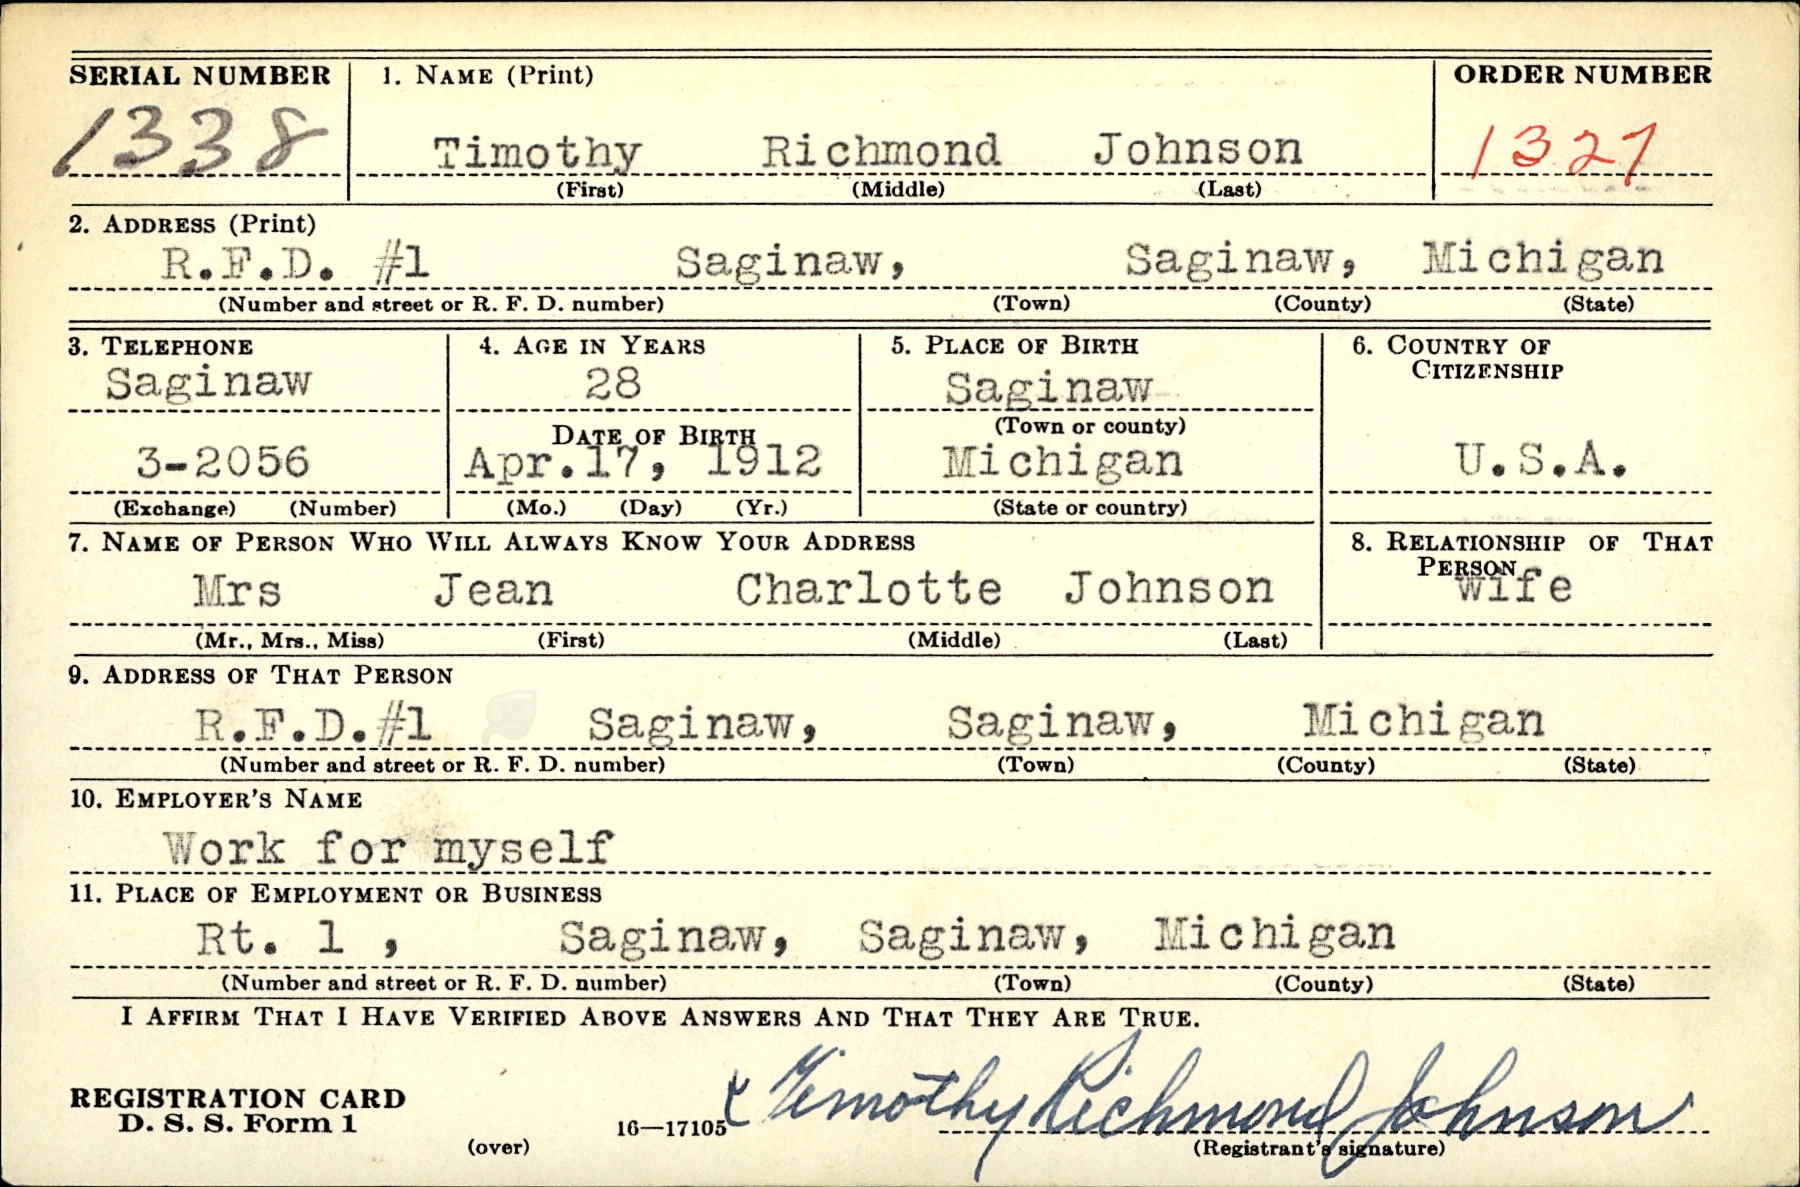 SERIAL NUMBER 1. NAME (Print) ORDER NUMBER
1338 Timothy Richmond Johnson 1327
(First) (Middle) (Last)
2. ADDRESS (Print)
R.F.D. #1 Saginaw, Saginaw, Michigan
(Number and street or R. F. D. number) (Town) (County) (State)
3. TELEPHONE 4. AGE IN YEARS 5. PLACE OF BIRTH 6. COUNTRY OF
CITIZENSHIP
Saginaw 28 Saginaw
(Town or county)
DATE OF BIRTH
3-2056 Apr.17, 1912 Michigan U.S.A.
(Exchange) (Number) (Mo.) (Day) (Yr.) (State or country)
7. NAME OF PERSON WHO WILL ALWAYS KNOW YOUR ADDRESS 8. RELATIONSHIP OF THAT
PERSON
Mrs Jean Charlotte Johnson wife
(Mr., Mrs., Miss) (First) (Middle) (Last)
9. ADDRESS OF THAT PERSON
R.F.D.#1 Saginaw, Saginaw, Michigan
(Number and street or R. F. D. number) (Town) (County) (State)
10. EMPLOYER'S NAME
Work for myself
11. PLACE OF EMPLOYMENT OR BUSINESS
Rt. 1 , Saginaw, Saginaw, Michigan
(Number and street or R. F. D. number) (Town) (County) (State)
I AFFIRM THAT I HAVE VERIFIED ABOVE ANSWERS AND THAT THEY ARE TRUE.
x Timothy Richmond Johnson
REGISTRATION CARD
D. S. S. Form 1 16—17105
(over) (Registrant's signature)